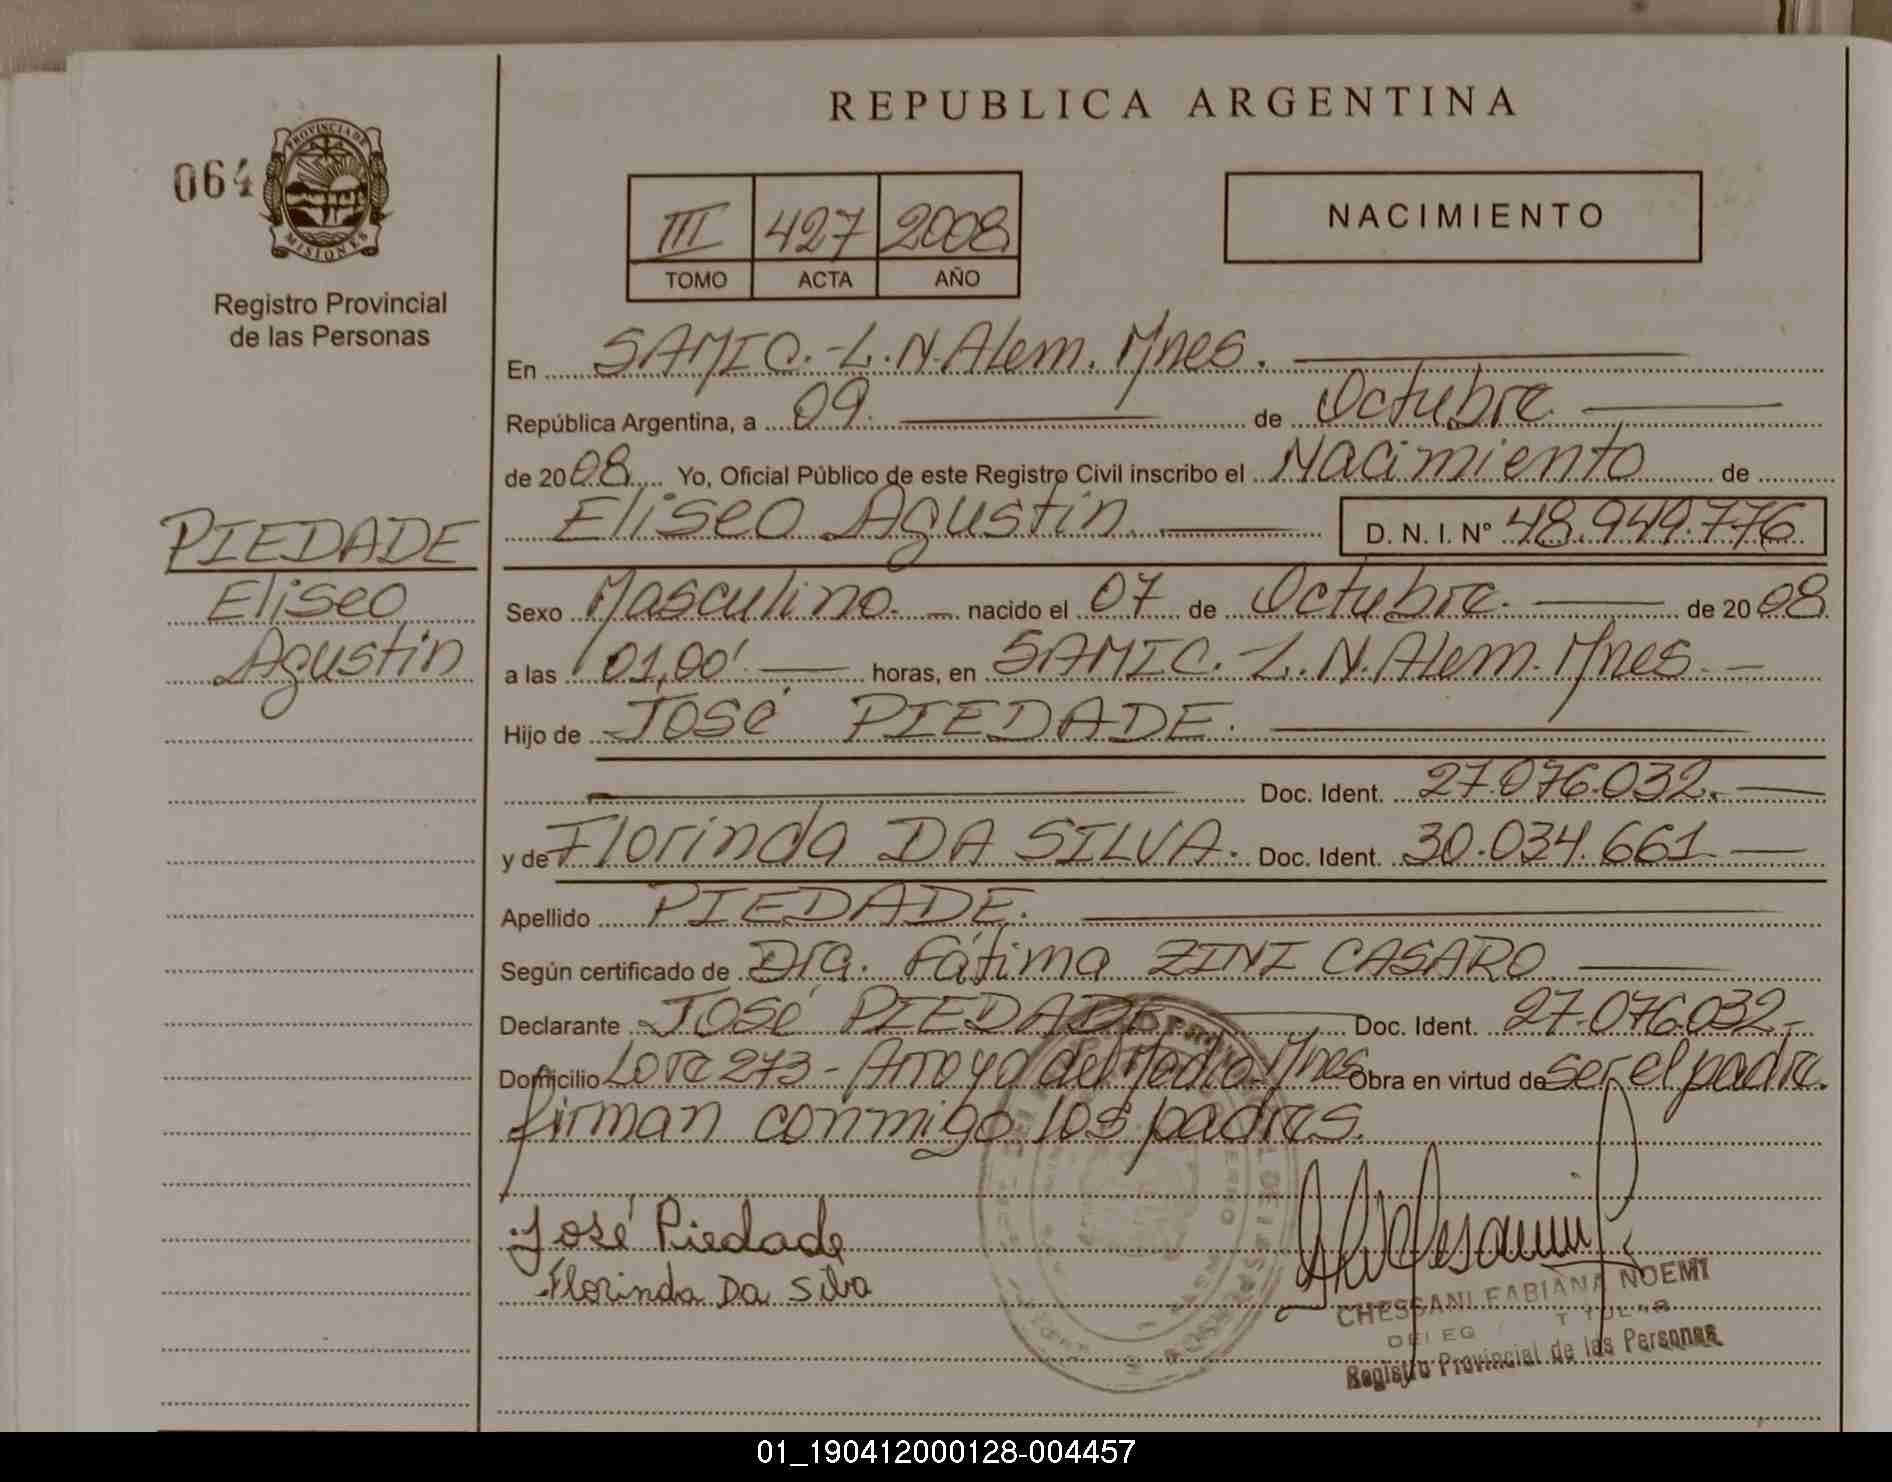 REPUBLICA ARGENTINA
064
PROVINCIA DE
MISIONES
Registro Provincial
de las Personas
III 427 2008
TOMO ACTA AÑO
NACIMIENTO
En SAMIC.-L.N.Alem. Mnes.
República Argentina, a 09. de Octubre.
de 2008 Yo, Oficial Público de este Registro Civil inscribo el Nacimiento de
Eliseo Agustin. D. N. I. N° 48.949.776
PIEDADE
Eliseo
Agustin
Sexo Masculino. nacido el 07 de Octubre. de 2008
a las 01,00' horas, en SAMIC. L.N. Alem. Mnes.
Hijo de José PIEDADE.
Doc. Ident. 27.076.032.
y de Florinda DA SILVA. Doc. Ident. 30.034.661
Apellido PIEDADE.
Según certificado de Dra. Fátima ZINI CASARO
Declarante José PIEDADE Doc. Ident. 27.076.032
Domicilio Lote 273 - Arroyo del Medio Mnes Obra en virtud de ser el padre.
firman conmigo los padres.
José Piedade
Florinda Da Silva
CHESSANI FABIANA NOEMI
Registro Provincial de las Personas
01_190412000128-004457